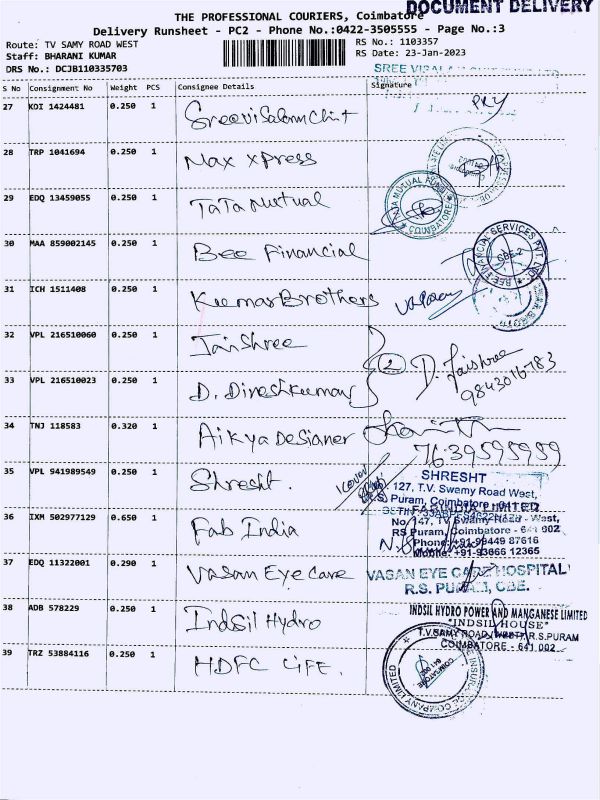 DOCUMENT DELIVERY
THE PROFESSIONAL COURIERS, Coimbatore
Delivery Runsheet - PC2 - Phone No.:0422-3505555 - Page No.:3
Route: TV SAMY ROAD WEST
RS No.: 1103357
Staff: BHARANI KUMAR
RS Date: 23-Jan-2023
DRS No.: DCJB110335703
S No Consignment No Weight PCS Consignee Details Signature
27 KDI 1424481 0.250 1
28 TRP 1041694 0.250 1 Max Xpress
29 EDQ 13459055 0.250 1 TaTa Mutual
TATA MUTUAL FUND
COIMBATORE
30 MAA 859002145 0.250 1 Bee Financial
BEE FINANCIAL SERVICES PVT. LTD.
CBE-2
31 ICH 1511408 0.250 1 Kumar Brothers
32 VPL 216510060 0.250 1 Jaishree
2 D. Jaishree
9843016783
33 VPL 216510023 0.250 1 D. Dineshkumar
34 TNJ 118583 0.320 1 Aikya Designer
7639595959
35 VPL 941989549 0.250 1 Shresht.
SHRESHT
127, T.V. Swamy Road West,
R.S. Puram, Coimbatore
36 IXM 502977129 0.650 1 Fab India
FABINDIA LIMITED
No 147, TV Swamy Road - West,
RS Puram, Coimbatore - 641 002
Phone: +91-99449 87616
Mobile: +91-93666 12365
37 EDQ 11322001 0.290 1 Vasan Eye Care
VASAN EYE CARE HOSPITAL
R.S. PURAM, CBE.
38 ADB 578229 0.250 1 Indsil Hydro
INDSIL HYDRO POWER AND MANGANESE LIMITED
"INDSIL HOUSE"
T.V.SAMY ROAD (WEST), R.S.PURAM
COIMBATORE - 641 002
39 TRZ 53884116 0.250 1 HDFC LIFE.